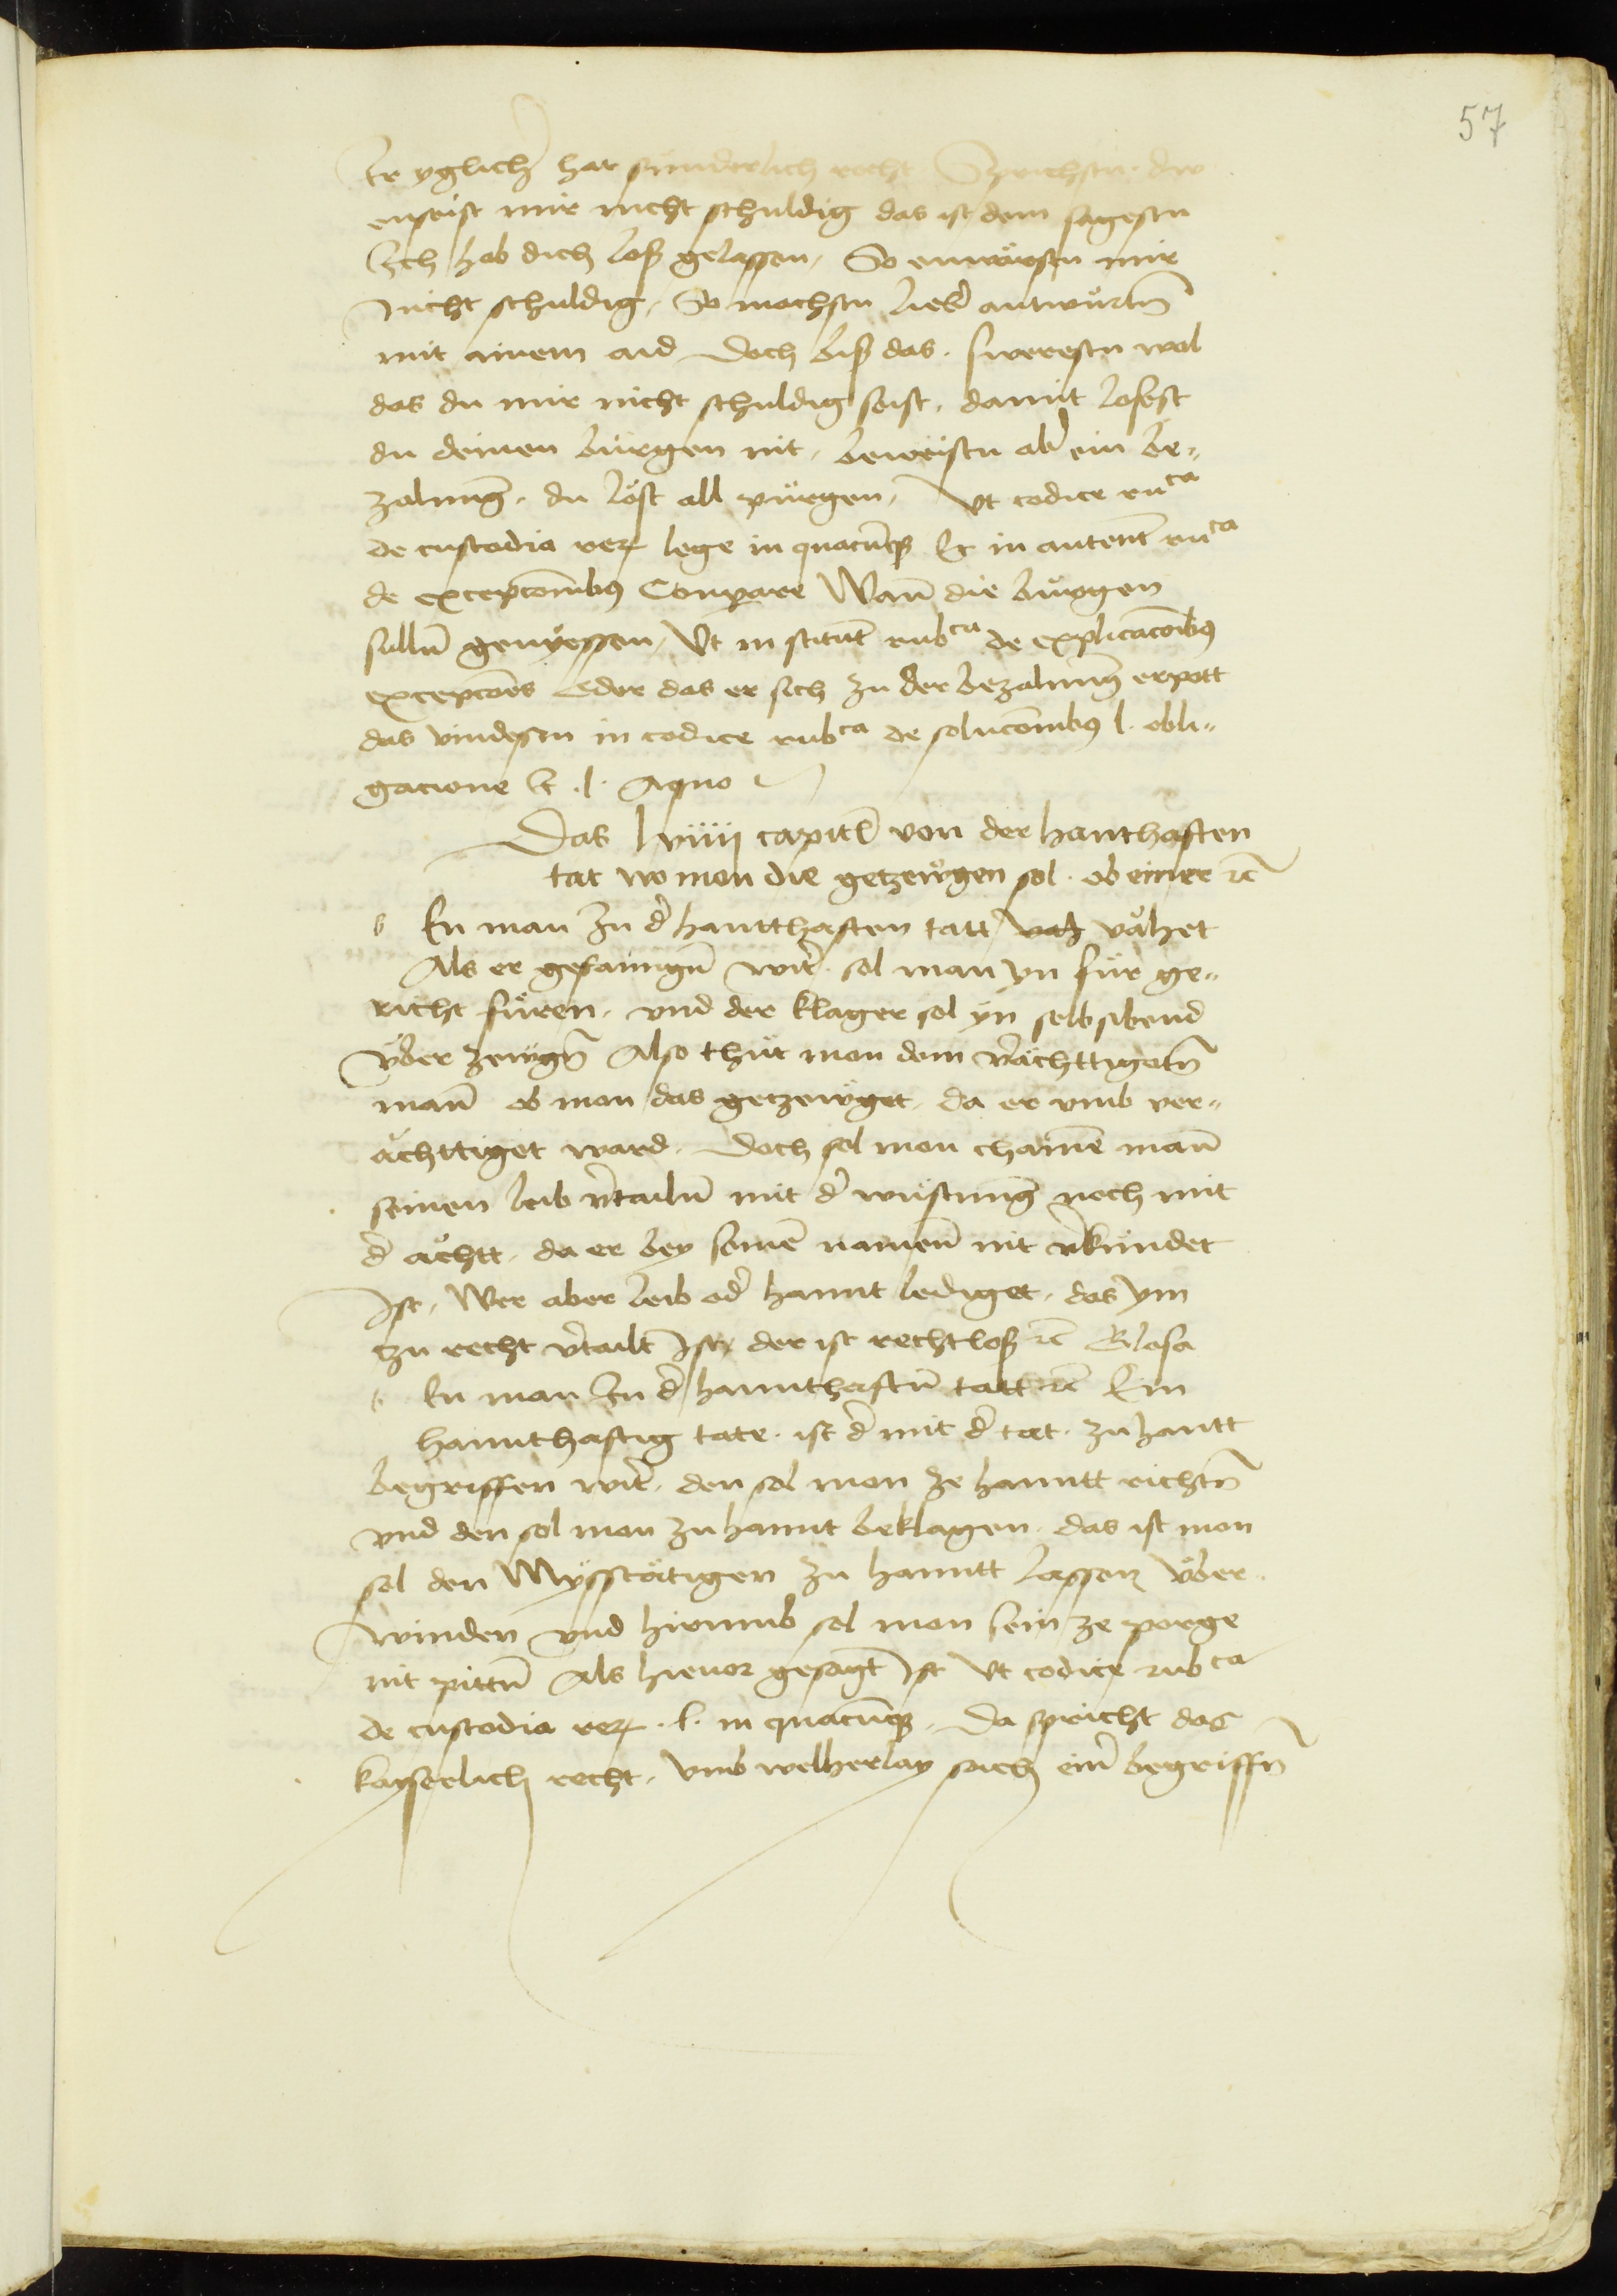 57
Er yglicher hat sunderlich recht Sprichstu du
enseist mir nicht schuldig das ist dem sagestu
Ich hab dich loß gelassen, So enwärstu mir
nicht schuldig, So mochstu lieb antwürtn̄
mit ainem aid doch biß das. swerestu wol
das du mir nicht schuldig seist, damit losest
du deinen bürgen nit, beweistu ab ein be„
zalung, du löst all pürgen, Vt codice ruᶜᵃ
de custodia reꝝ lege in quacūqꝫ Et in autent̄ ruᶜᵃ
de excepcōnibꝰ Conpare Wann̄ die bürgen
sulln̄ genyessen, Vt in stitut̄ rubᶜᵃ de explicacōibꝰ
excepcōēs Oder das er sich zu der bezalung erpott
das vindestu in codice rubᶜᵃ de solucōnibꝰ l. obli„
gacione Et .l. Aquo
Das lxviiij capitl̄ von der hanthaften
tat wo mon die getzewgen sol. ob einer ꝛc̄
En man In d̄ hantthaften tatt vächet
Als er gefanngn̄ wirt. sol man yn für ge„
richt füren, vnd der klager sol yn selbsibend
über zewgn̄ Also thut mon dem v̄ächttigetn̄
mann̄ ob mon das getzewget, da er vmb ver„
ächttiget ward. Doch sol mon chainē mann̄
seinen leib v̄tailn̄ mit d̄ wüstung noch mit
d̄ ächtt, da er bey seinē namenn̄ nit v̄kündet
Ist, Wer aber leib od̄ hannt lediget, das ym
zu recht v̄tailt Ist, der ist rechtloß ꝛc̄ Glosa
En man In d̄ hannthaftn̄ tatt ꝛc̄ Ein
hannthaftig tate. ist d̄ mit d̄ tat. zu hantt
begriffen wirt, den sol mon ze hanntt richtn̄
vnd den sol mon zu hannt beklagen. das ist mon
sol den Mysstätigen zu hanntt lassen über
winden vnd hirumb sol mon sein ze porge
nit pittn̄ Als hieuor gesagt Ist Vt codice rubᶜᵃ
de custodia reꝝ .l. in quacūqꝫ, Da spricht das
kayserlich recht, vmb welherlay sach einr̄ begriffn̄